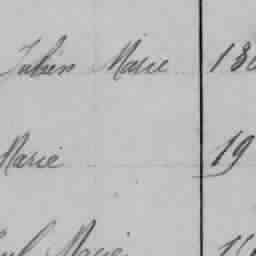 Julien Marie 18
Marie 19
Marie